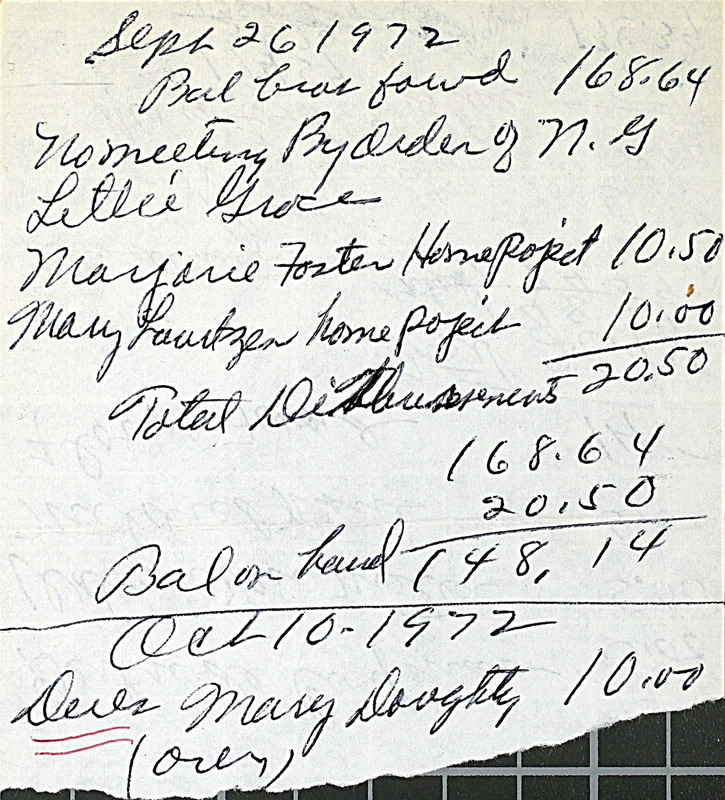 Sept 26 1972
Bal brot forwd 168.64
No meeting By Order of N. G
Lettie Groce
Marjorie Foster Home Poject 10.50
Mary Lauritzen home poject 10.00
Total Disbursements 20.50
168.64
20.50
Bal on hand 148.14
Oct 10-1972
Dues Mary Doughty 10.00